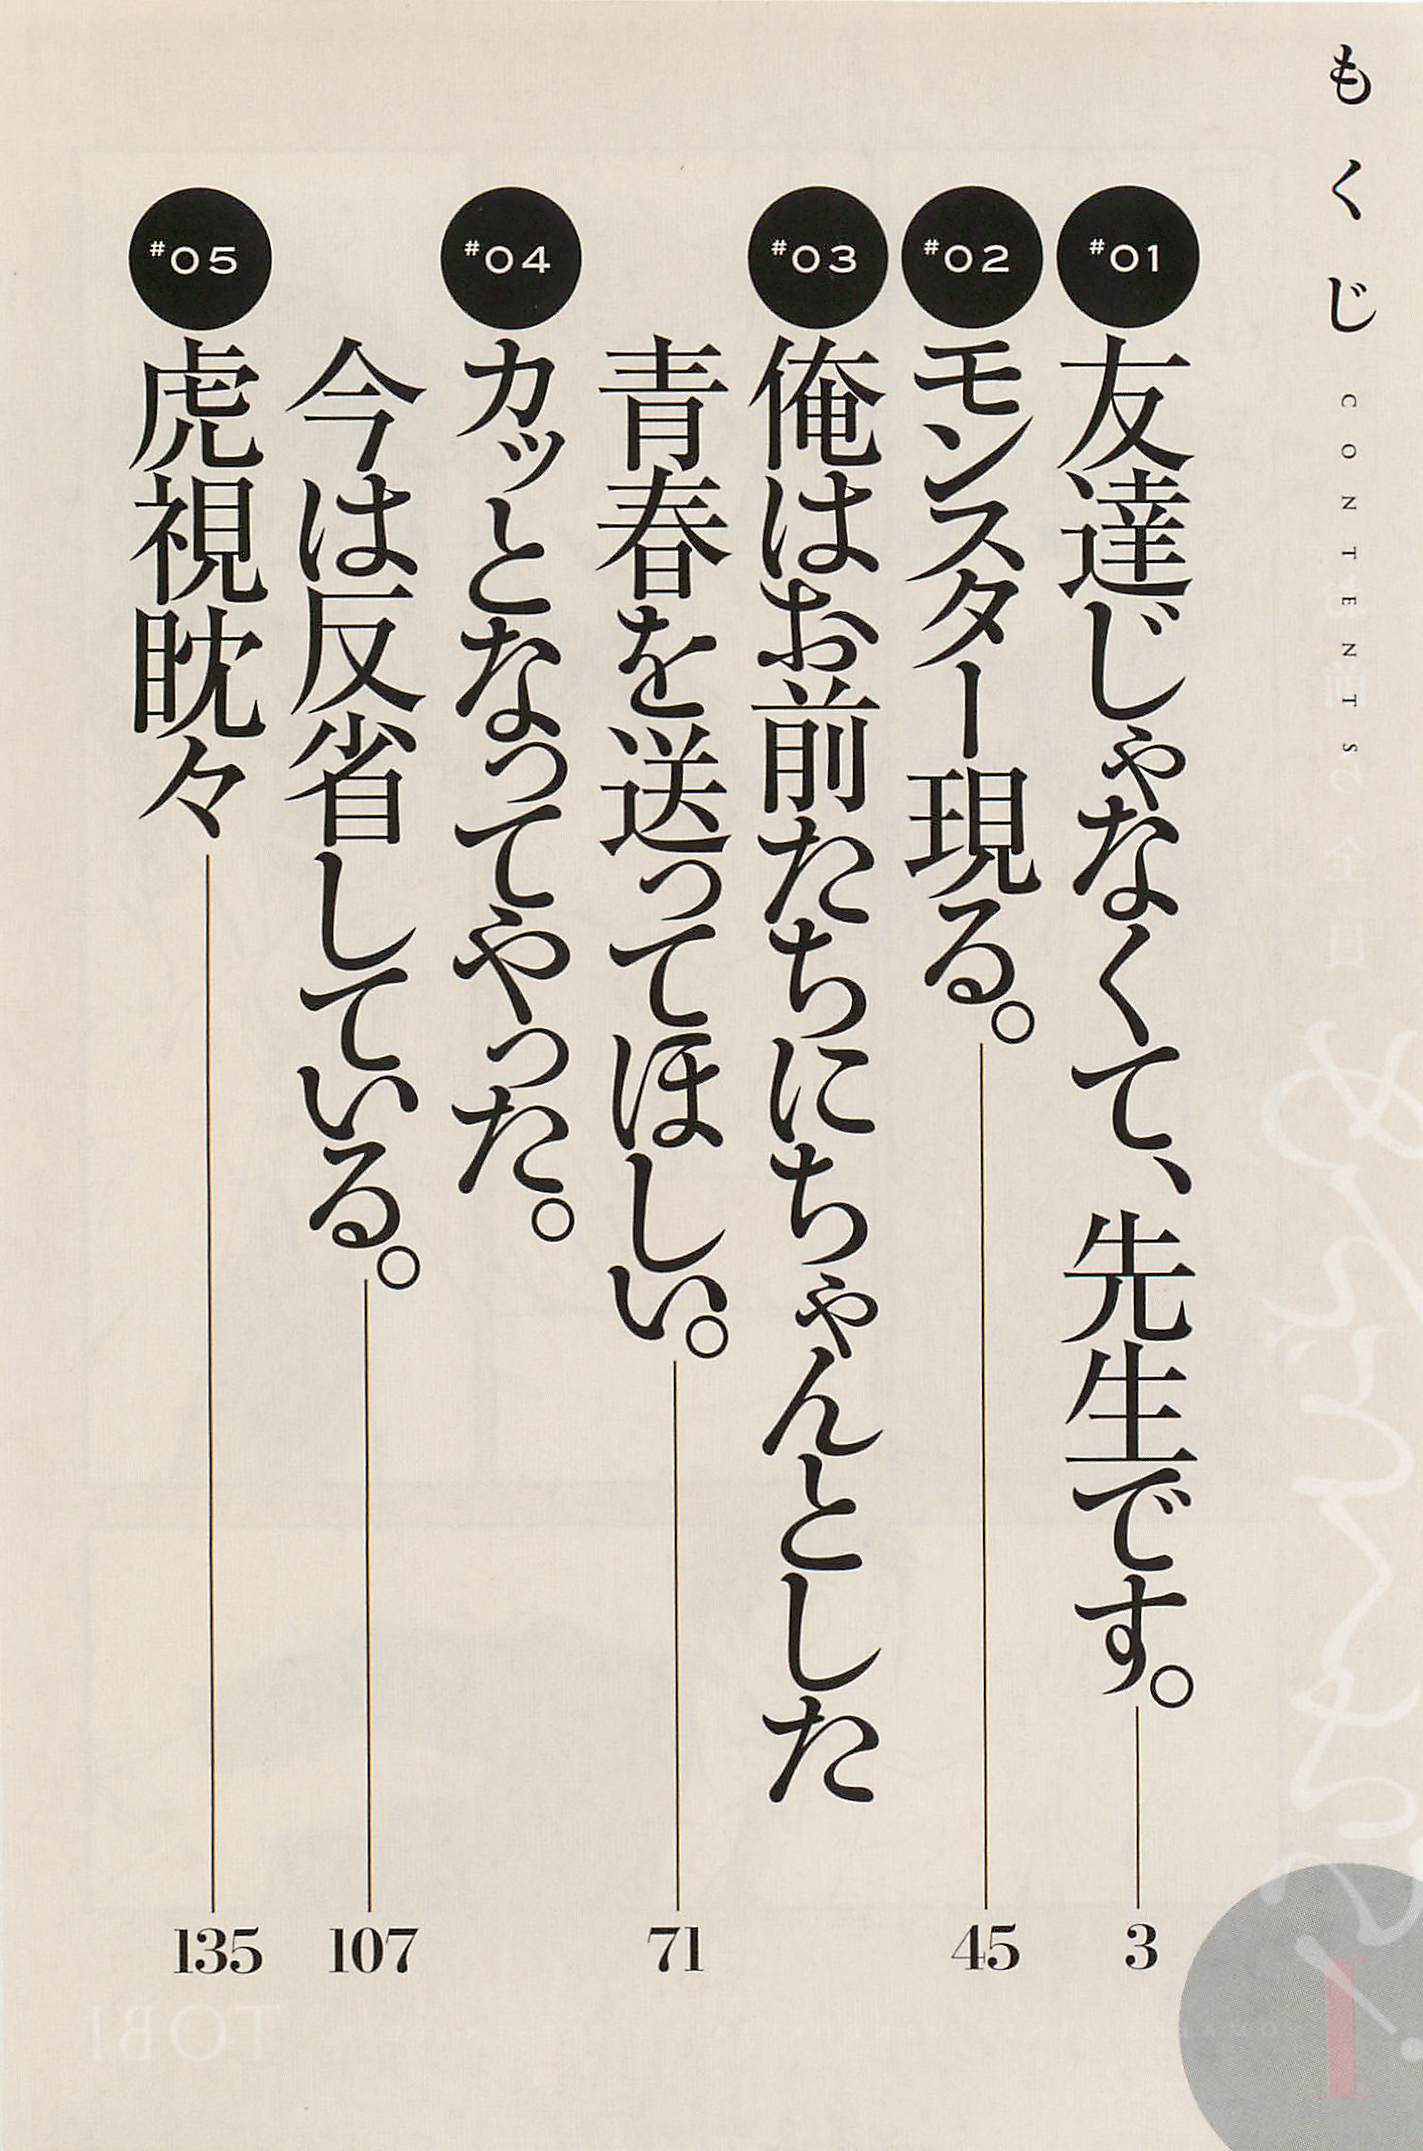 もくじ
CONTENTS
#01
友達じゃなくて、先生です。
3
#02
モンスター現る。
45
#03
俺はお前たちにちゃんとした
青春を送ってほしい。
71
#04
カッとなってやった。
今は反省している。
107
#05
虎視眈々
135
1
TOBI